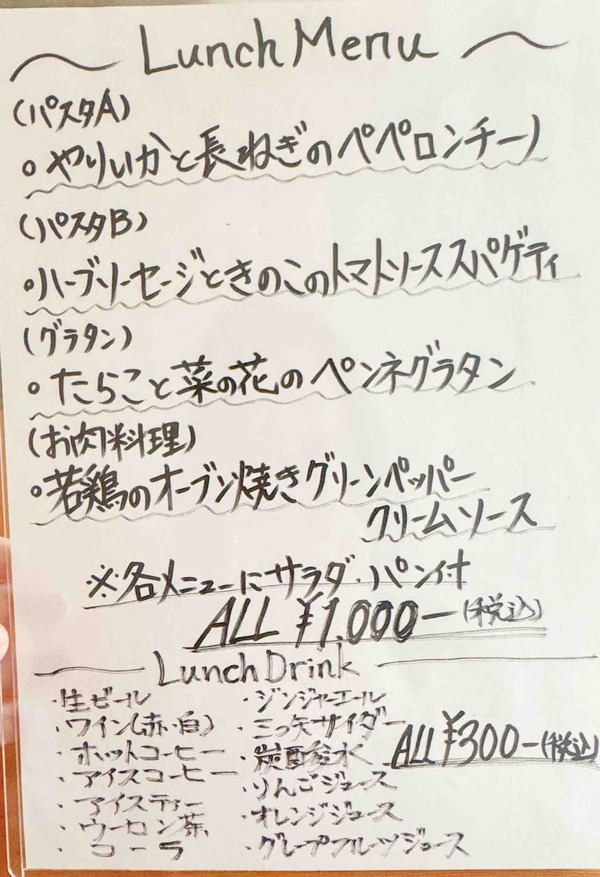 Lunch Menu
(パスタA)
○やりいかと長ねぎのペペロンチーノ
(パスタB)
○ハーブソーセージときのこのトマトソーススパゲティ
(グラタン)
○たらこと菜の花のペンネグラタン
(お肉料理)
○若鶏のオーブン焼きグリーンペッパー
クリームソース
※各メニューにサラダ・パン付
ALL ¥1.000-(税込)
Lunch Drink
・生ビール
・ワイン(赤・白)
・ホットコーヒー
・アイスコーヒー
・アイスティー
・ウーロン茶
・コーラ
・ジンジャーエール
・三ツ矢サイダー
・炭酸水
・りんごジュース
・オレンジジュース
・グレープフルーツジュース
ALL ¥300-(税込)